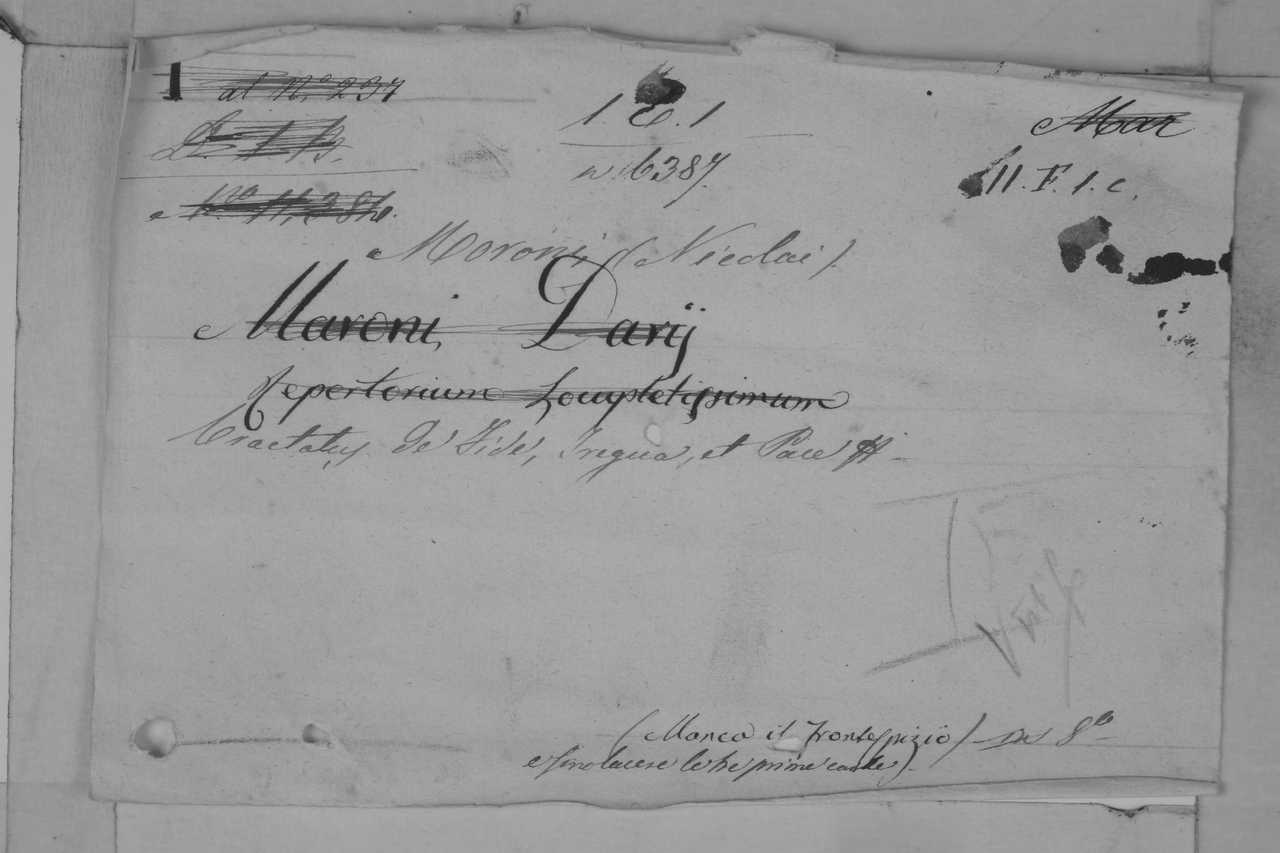 al N.º 237
1. E. 1
Mar
n. 6387.
11. F. 1. c.
Moroni (Nicolai).
Maroni Darij
Repertorium Locupletissimum
Tractatus de Fide, Tregua, et Pace
(Manca il Frontespizio) in 8º
e sono lacere le tre prime carte).